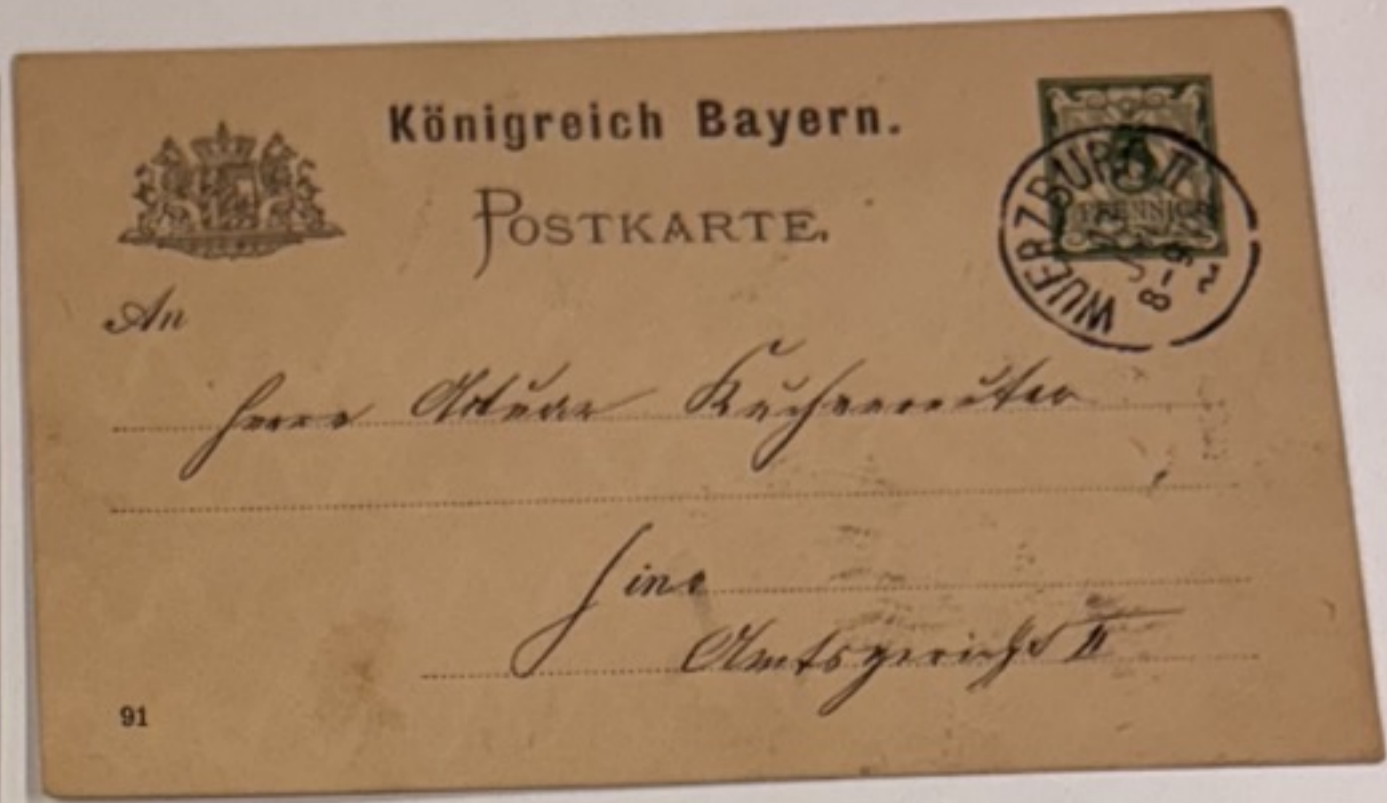 Königreich Bayern.
POSTKARTE.
5
PFENNIG
WUERZBURG II
8-9
An
Herrn Aktuar Küchenreuter
hier
Amtsgericht II
91